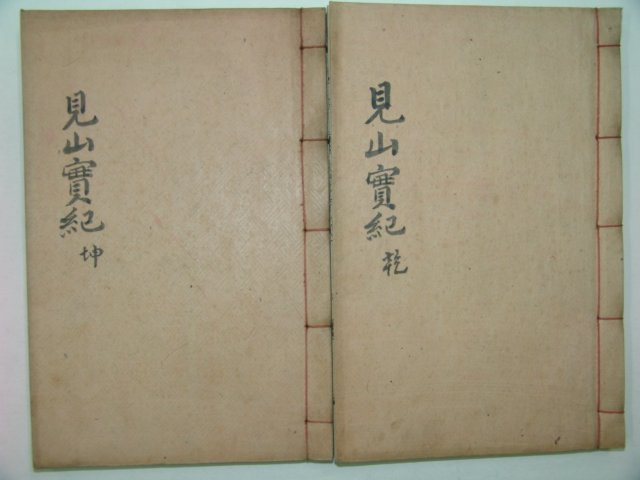 見山實紀 乾
見山實紀 坤